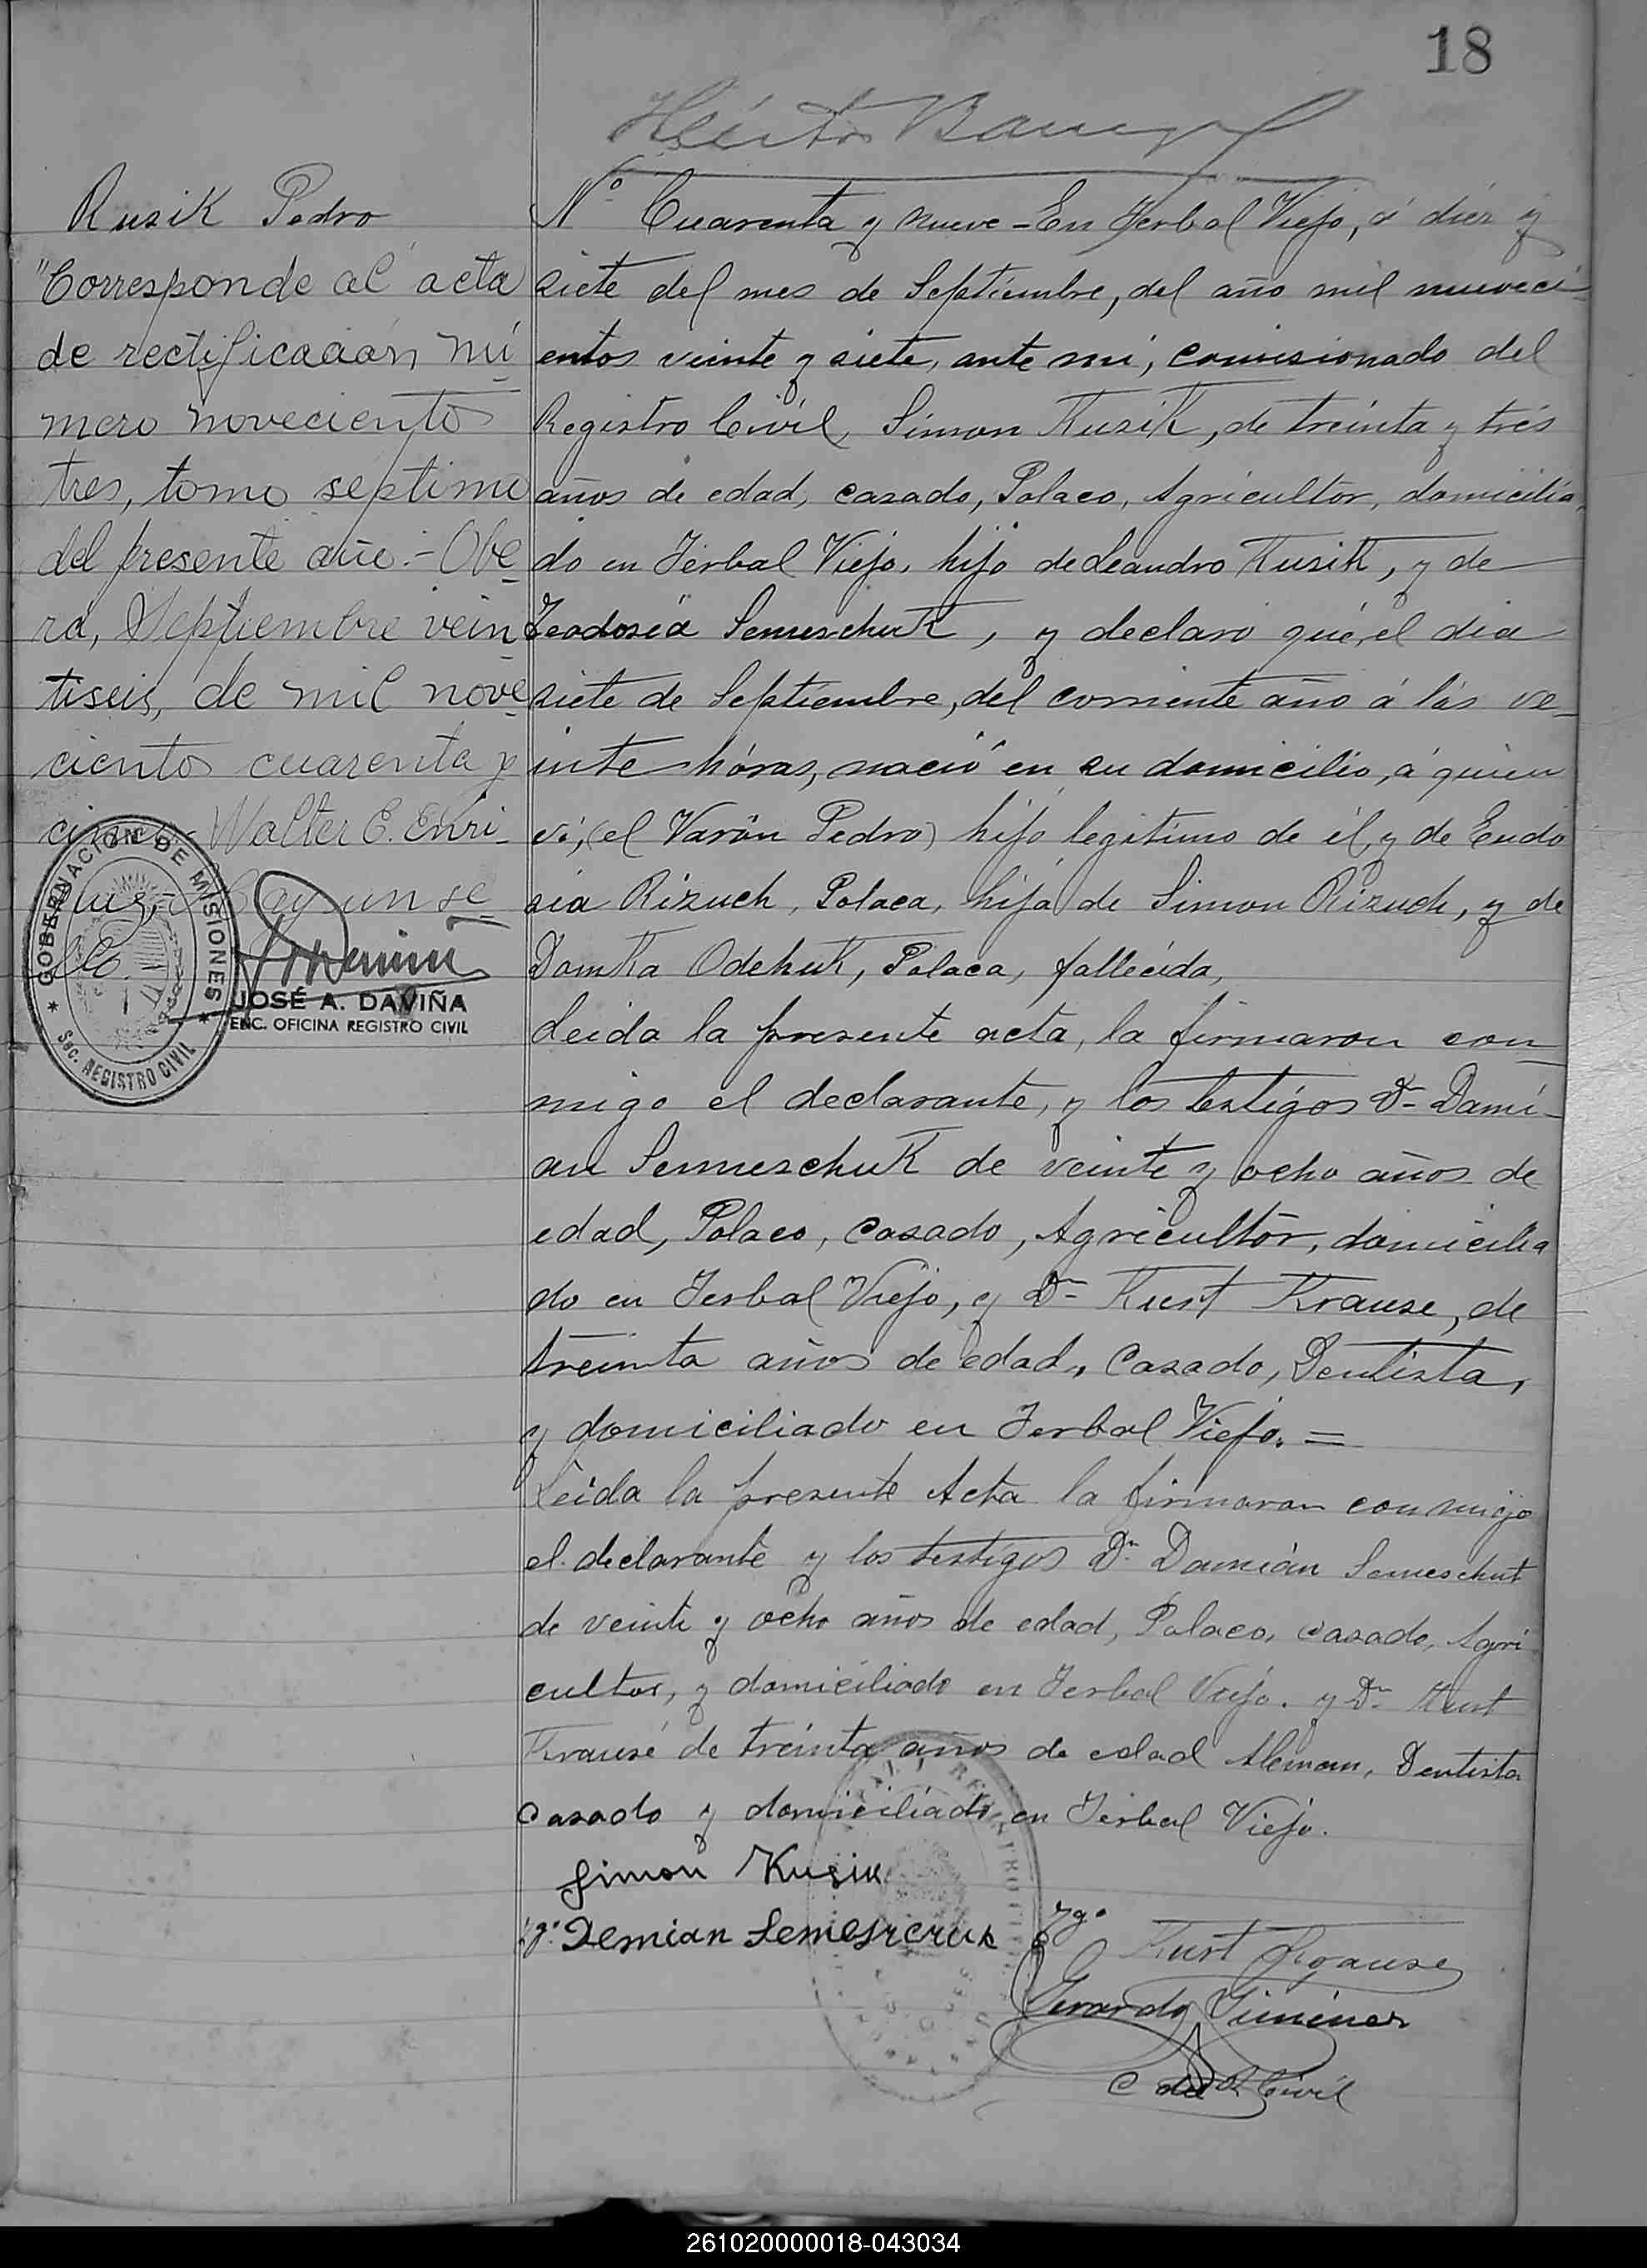 18
Héctor
Rusik Pedro
"Corresponde al acta
de rectificación nú
mero novecientos
tres, tomo septimo
del presente año.- Obe
rá, Septiembre vein
tiseis, de mil nove
cientos cuarenta y
cinco.- Walter E. Enri
quez,- Hay un se
llo.-
GOBERNACION DE MISIONES
Sec. REGISTRO CIVIL
JOSÉ A. DAVIÑA
ENC. OFICINA REGISTRO CIVIL
Nº Cuarenta y nueve - En Yerbal Viejo, á diez y
siete del mes de Septiembre, del año mil nueveci
entos veinte y siete, ante mi, comisionado del
Registro Civil, Simon Kusik, de treinta y trés
años de edad, casado, Polaco, Agricultor, domicilia
do en Yerbal Viejo, hijo de Leandro Kusik, y de
Teodosia Semeschuk, y declaró que, el dia
siete de Septiembre, del corriente año á lás ve-
inte hóras, nació en su domicilio, á quien
vi, (el Varón Pedro) hijo legitimo de él, y de Eudo
sia Rizuch, Polaca, hija de Simon Rizuch, y de
Domka Odchuk, Polaca, fallecida,
Leida la presente acta, la firmaron con
migo el declarante, y los testigos Dn Dami-
an Semeschuk de veinte y ocho años de
edad, Polaco, casado, Agricultor, domicilia
do en Yerbal Viejo, y Dn Kurt Krause, de
treinta años de edad, Casado, Dentista,
y domiciliado en Yerbal Viejo. =
Leida la presente Acta la firmaron conmigo
el declarante y los testigos Dn Damián Semeschuk
de veinte y ocho años de edad, Polaco, casado, Agri
cultor, y domiciliado en Yerbal Viejo. y Dn Kurt
Krause de treinta años de edad Aleman, Dentista
casado y domiciliado en Yerbal Viejo.
Simon Kusik
Tgo Demian
Tgo Kurt Krause
Gerardo Gimenez
C del R. Civil
261020000018-043034